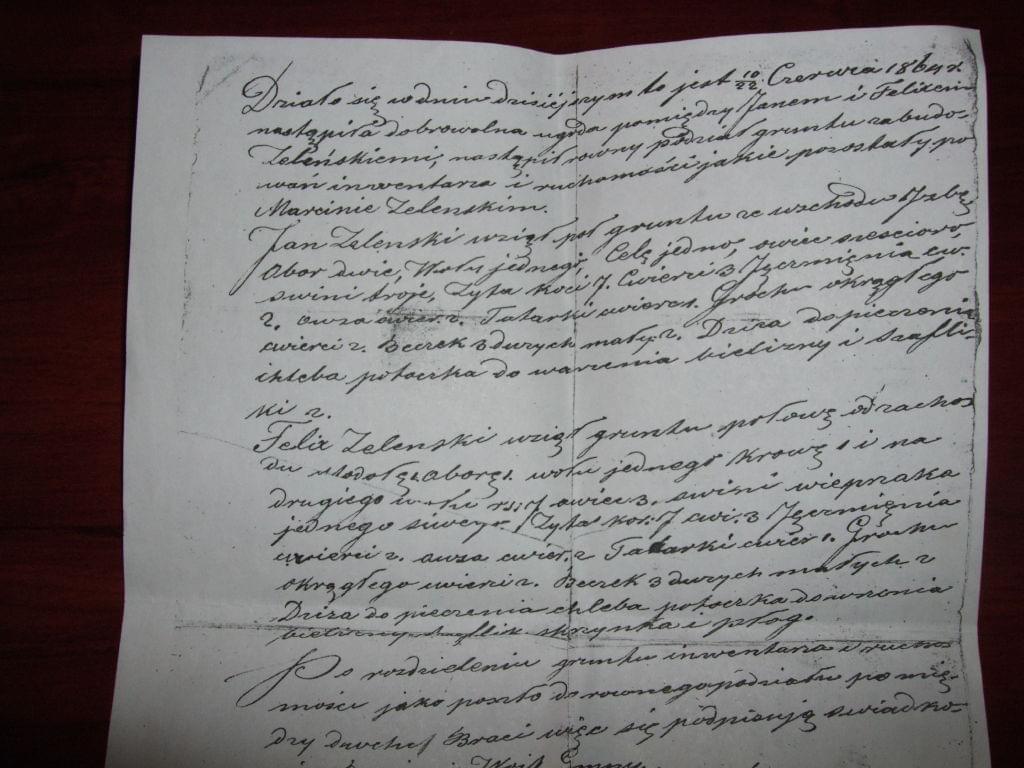 Działo się w dniu dzisiejszym to jest 10/22 Czerwca 1864 r
nastąpiła dobrowolna ugoda pomiędzy Janem i Felixem
Zeleńskiemi, nastąpił rowny podział gruntu zabudo-
wań inwentarza i ruchomości jakie pozostały po
Marcinie Zelenskim.
Jan Zelenski wziął poł gruntu ze wschodu Izbę
Obor dwie, Wołu jednego, Celę jedno, owiec sześcioro,
swini troje, Zyta Koci 7. Cwierci 3 Jęczmięnia cw.
2. owsa cwier. 2. Tatarki cwierc 1. Grochu okrągłego
cwierci 2. Beczek 3 duzych mały. 2. Dziza do pieczenia
chleba potoczka do warzenia bielizny i szafli-
ki 2.
Felix Zelenski wziął gruntu połowę od zacho-
du stodołę 1 oborę 1. wołu jednego Krowę 1 i na
drugiego rs: 7 owiec 3. swini wieprzaka
jednego Zyta kor. 7 cwi. 3 Jęczmięnia
cwierci 2. owsa cwier. 2 Tatarki cwier 1. Grochu
okrągłego cwierci 2. Beczek 3 duzych małych 2
Dziza do pieczenia chleba potoczka do
bielizny szaflik skrzynka i płog.
Po rozdzieleniu gruntu inwentarza i rucho
mości jako poszło do rownego podziału pomię-
dzy dwoch Braci więc się podpisują swiadko-
Wojt Gminy